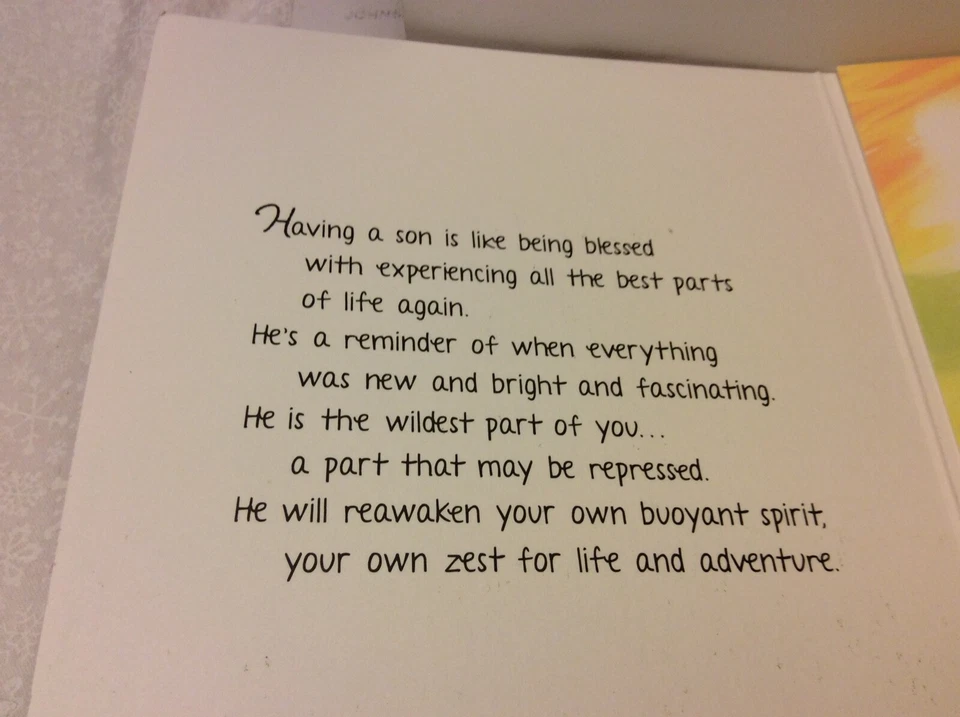 Having a son is like being blessed
with experiencing all the best parts
of life again.
He's a reminder of when everything
was new and bright and fascinating.
He is the wildest part of you...
a part that may be repressed.
He will reawaken your own buoyant spirit,
your own zest for life and adventure.